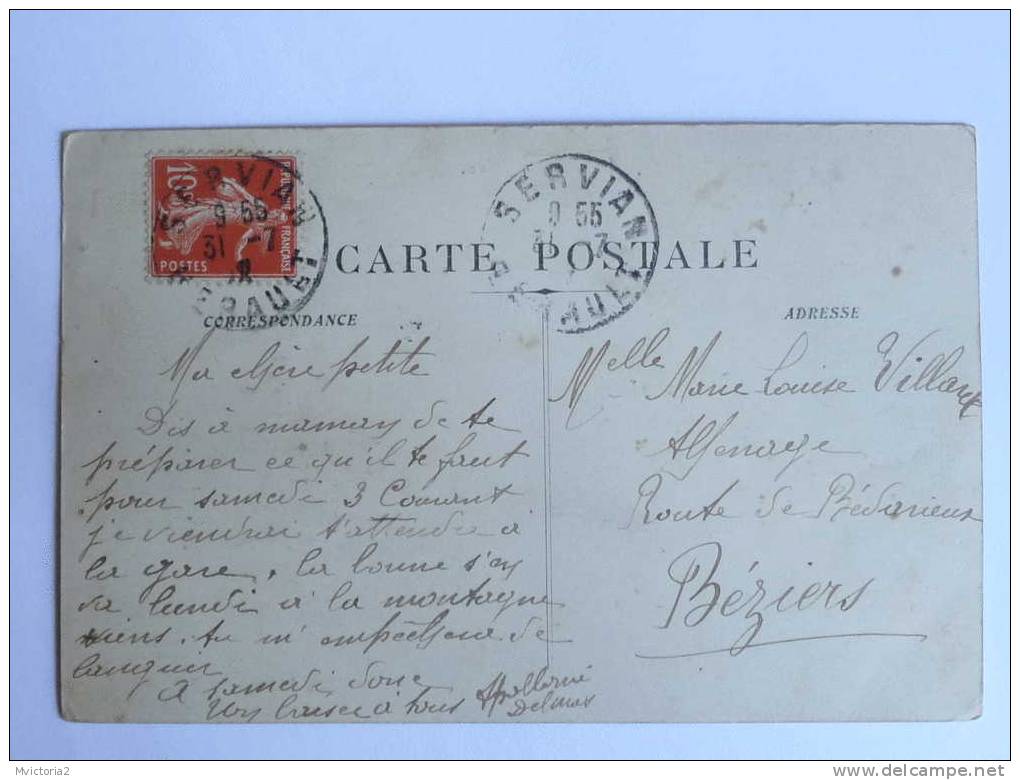 10
REPUBLIQUE FRANÇAISE
POSTES
SERVIAN
9 55
31 -7
HERAULT
SERVIAN
9 55
31 7
HERAULT
CARTE POSTALE
CORRESPONDANCE
ADRESSE
Ma chère petite
Dis à maman de te
préparer ce qu'il te faut
pour samedi 3 Courant
je viendrai t'attendre à
la gare, la bonne s'en
va lundi à la montagne
viens, tu m'empêchera de
languir
A samedi donc
Un baiser à tous
Delmas
Melle Marie Louise Villaret
Route de Bédarieux
Béziers
Mvictoria2
delcampe.net